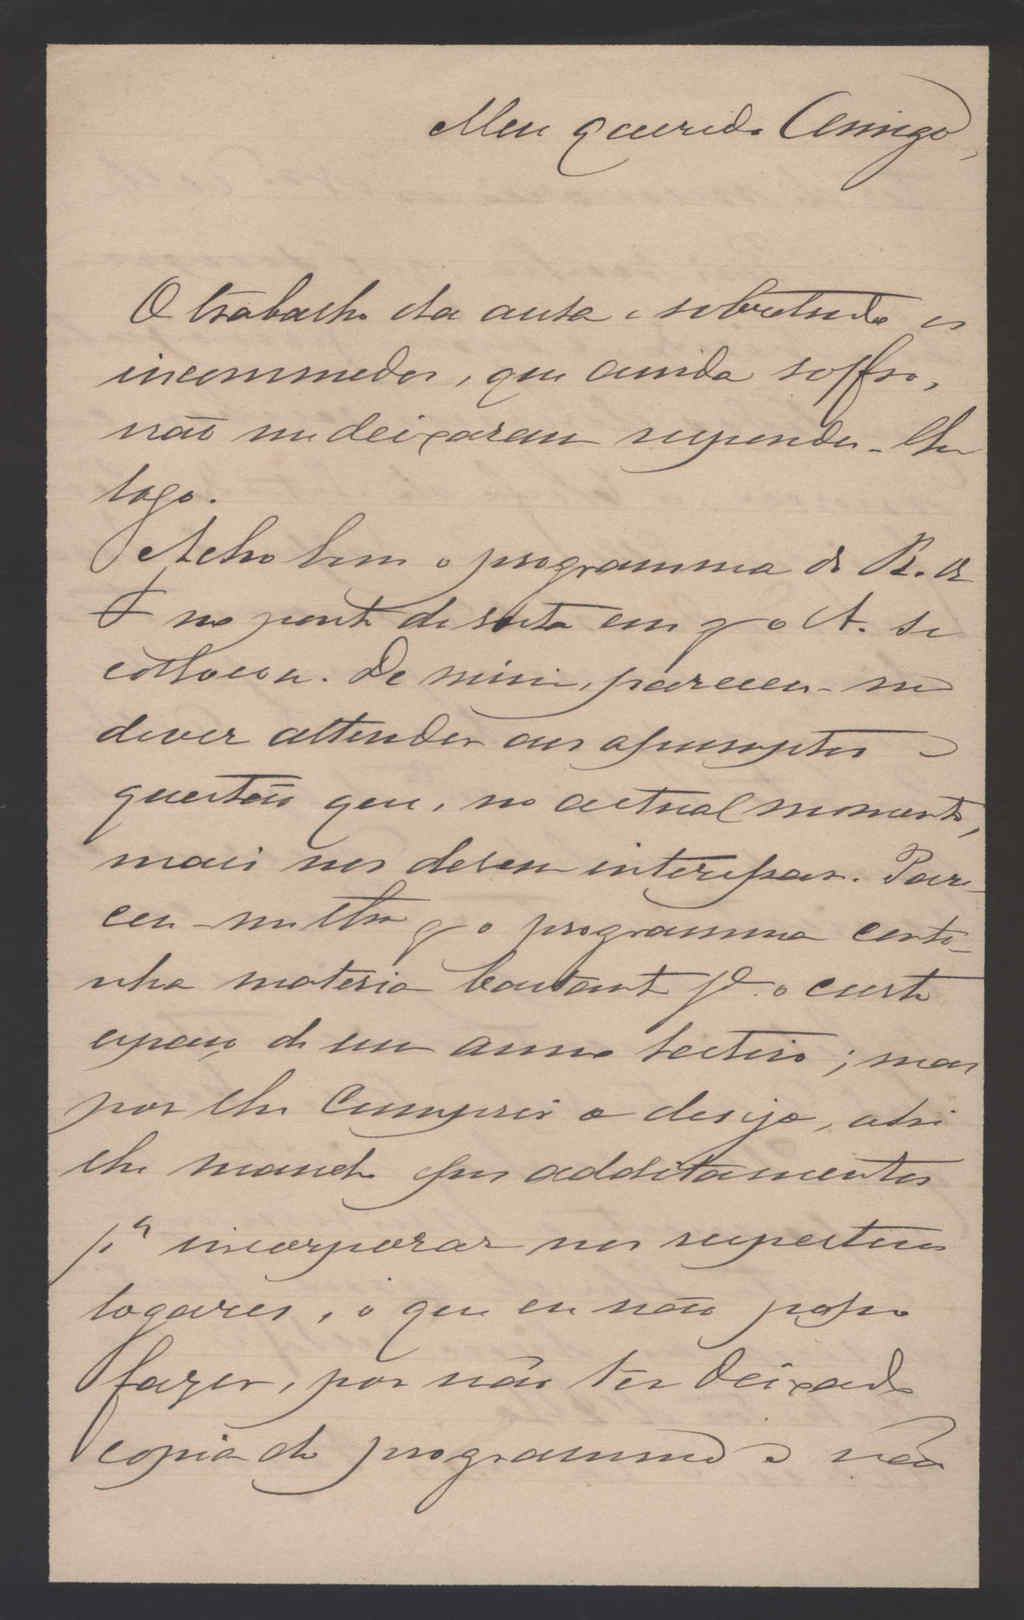 Meu querido Amigo,
O trabalho da aula e sobretudo os
incommodos, que ainda soffro,
não me deixaram responder-lhe
logo.
Acho bom o programma de R. de
F no ponto de vista em q o A. se
collocou. De mim, pareceu-me
dever attender aos assumptos e
questões que, no actual momento,
mais nos devem interessar. Pare-
ceu-me tbm q o programma conti-
nha materia bastante pª o curto
espaço de um anno lectivo; mas
por lhe cumprir o desejo, ahi
lhe mando esses additamentos
pª incorporar nos respectivos
logares, o que eu não posso
fazer, por não ter deixado
copia do programma e não